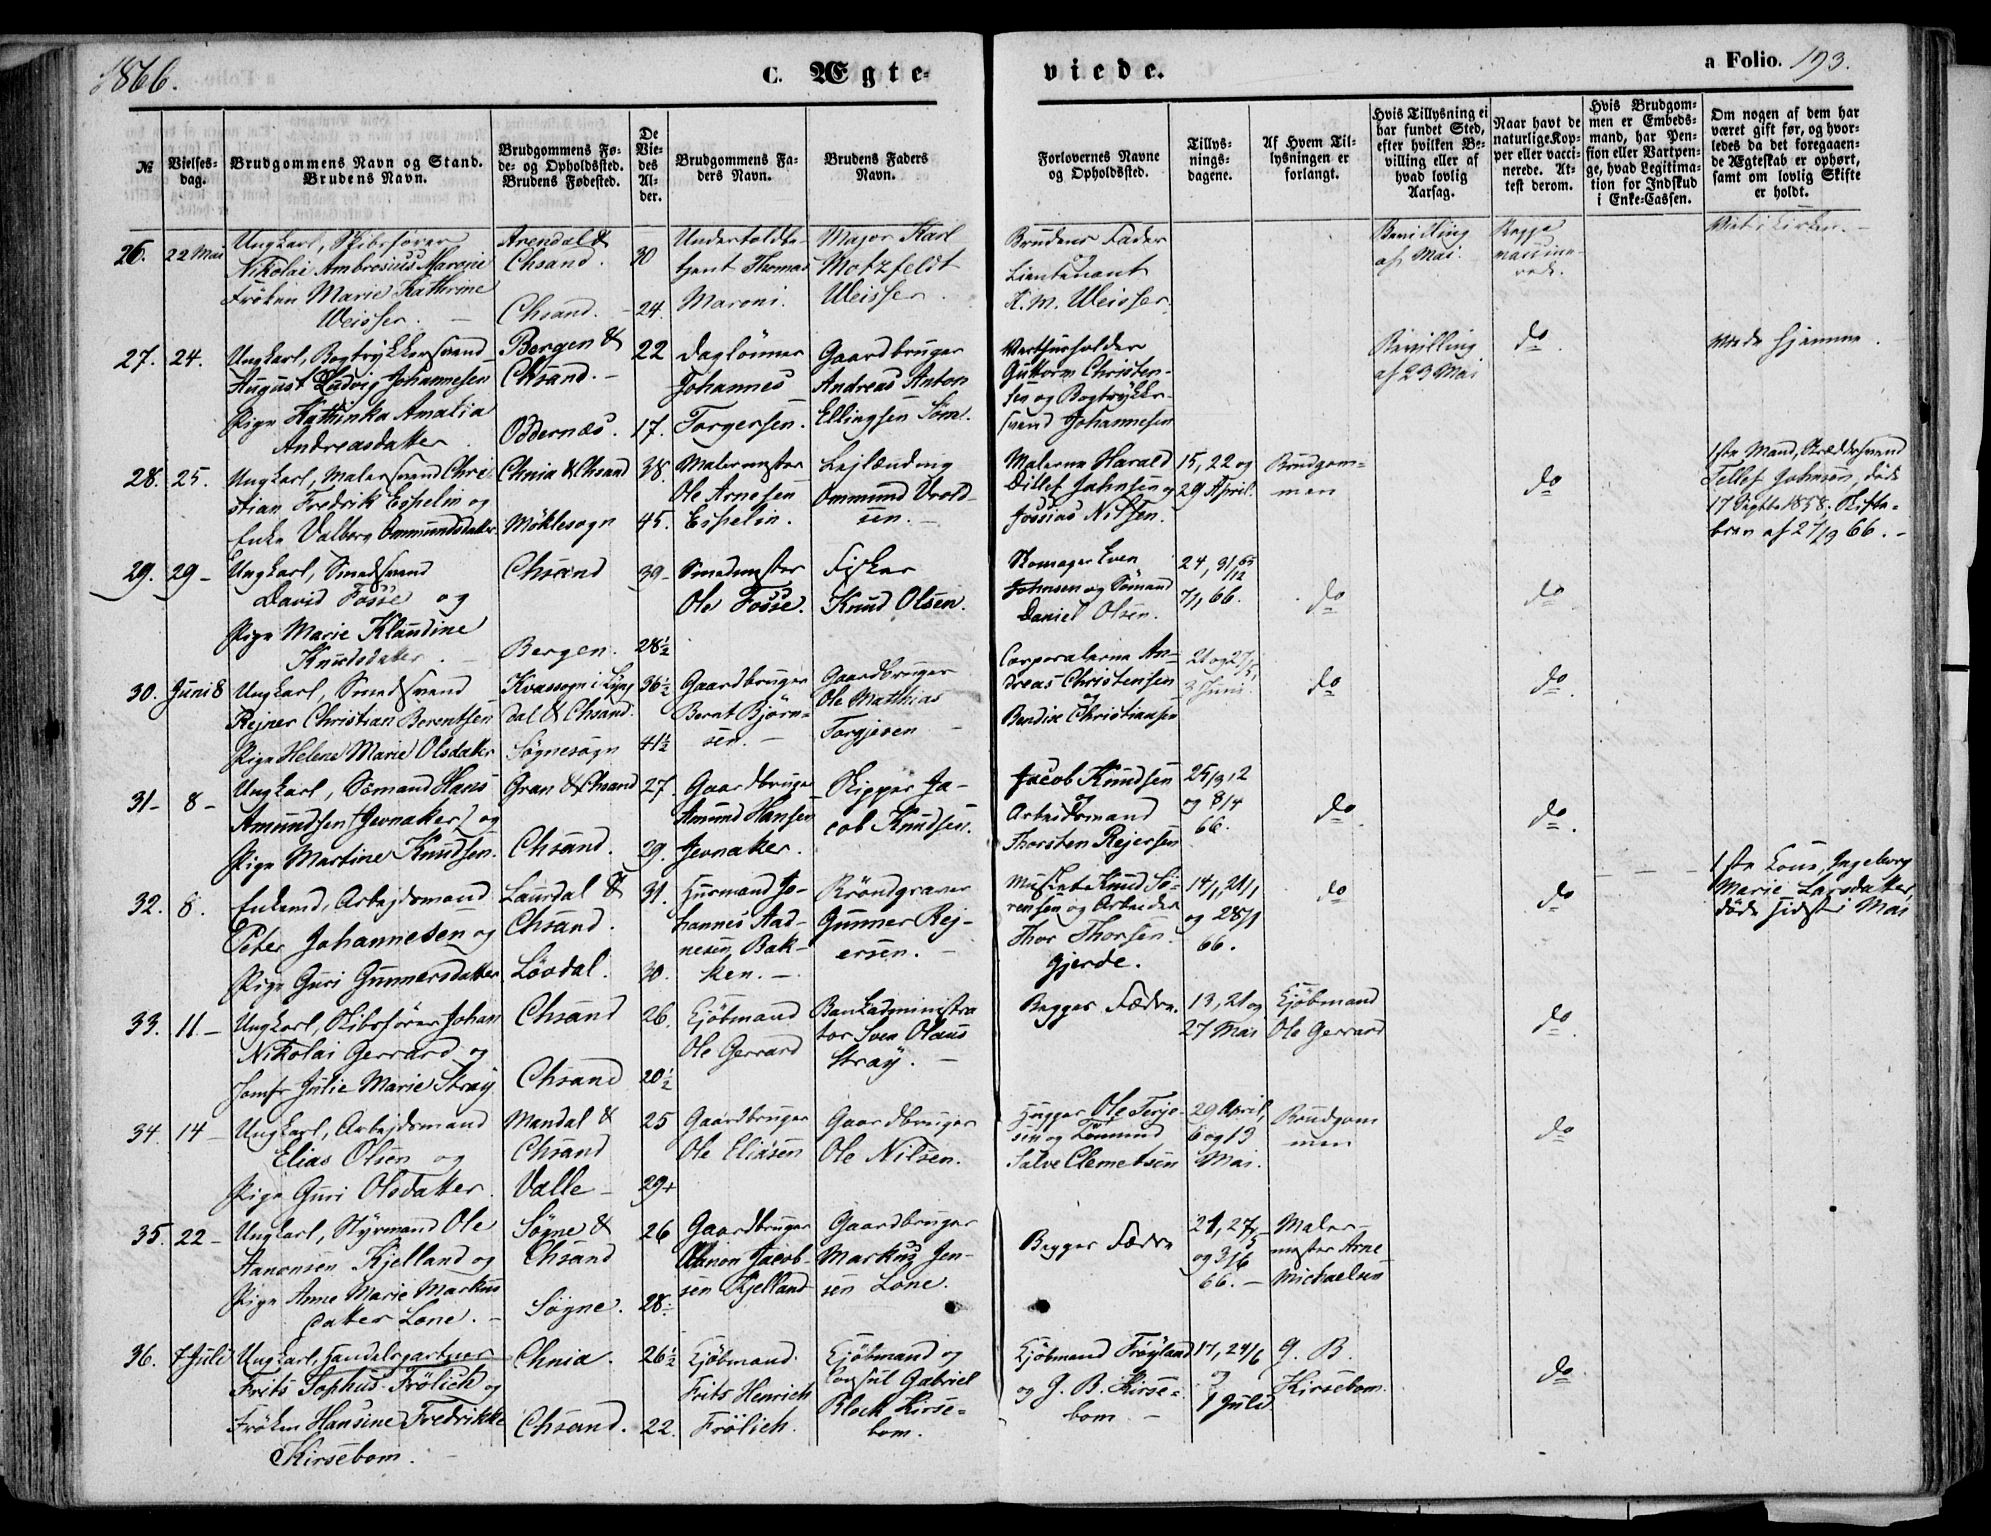 1866.
C. Ægte-
viede.
a Folio. 193.
№
Vielses-
dag.
Brudgommens Navn og Stand.
Brudens Navn.
Brudgommens Fø-
de- og Opholdssted.
Brudens Fødested.
De
Vie-
des
Al-
der.
Brudgommens Fa-
ders Navn.
Brudens Faders
Navn.
Forlovernes Navne
og Opholdssted.
Tillys-
nings-
dagene.
Af Hvem Til-
lysningen er
forlangt.
Hvis Tillysning ei
har fundet Sted,
efter hvilken Be-
villing eller af
hvad lovlig
Aarsag.
Naar havt de
naturlige Kop-
per eller vacci-
nerede. At-
test derom.
Hvis Brudgom-
men er Embeds-
mand, har Pen-
sion eller Vartpen-
ge, hvad Legitima-
tion for Indskud
i Enke-Cassen.
Om nogen af dem har
været gift før, og hvor-
ledes da det foregaaen-
de Ægteskab er ophørt,
samt om lovlig Skifte
er holdt.
26. 22 Mai
Ungkarl, Skibsfører
Nikolai Ambrosius Maroni
Frøken Marie Kathrine
Weisser.
Arendal &
Chsand.
Chsand.
30
24.
Undertoldbe-
tjent Thomas
Maroni.
Major Karl
Motzfeldt
Weisser.
Brudens Fader
Lieutenant
K. M. Weisser.
Bevilling
af Mai.
Begge
vaccine-
rede.
Viet i Kirken.
27. 24.
Ungkarl, Bogtrykkersvend
August Ludvig Johannesen
Pige Kathinka Amalia
Andreasdatter.
Bergen &
Chsand.
Oddernæs.
22
17.
Daglönner
Johannes
Torgersen.
Gaardbruger
Andreas Anton
Ellingsen Söm.
Værthusholder
Guttorm Christen-
sen og Bogtrykker-
svend Johannesen
Bevilling
af 23 Mai
do
Viede hjemme.
28. 25.
Ungkarl, Malersvend Chri-
stian Fredrik Espelin og
Enke Valborg Ommundsdatter.
Chnia & Chsand
Møklesogn
38.
45.
Malermester
Ole Arnesen
Espelin.
Lejlænding
Ommund Vrold-
sen.
Malerne Harald
Ditlef Jahnsen og
Jossias Nilsen.
15, 22 og
29 April.
Brudgom-
men
do
1ste Mand, Skræddersvend
Tellef Johnsen, døde
17 Septbr 1858; Skifte-
brev af 27/9 66.
29. 29
Ungkarl, Smedsvend
David Fosse og
Pige Marie Klaudine
Knudsdatter.
Chsand
Bergen.
39
28½
Smedmester
Ole Fosse.
Fisker
Knud Olsen.
Skomager Even
Johnsen og Sömand
Daniel Olsen.
24, 31/12 65
7/1 66.
do
do
30. Juni 8
Ungkarl, Smedsvend
Rejner Christian Berentsen
Pige Helene Marie Olsdatter
Kvassogn i Lyng-
dal & Chsand.
Søgnesogn
36½
41½
Gaardbruger
Bernt Bjørn-
sen.
Gaardbruger
Ole Matthias
Torgjesen
Corporalerne An-
dreas Christensen
og
Bendix Christiansen
21 og 27/5,
3 Juni.
do
do
31 8
Ungkarl, Sömand Hans
Amundsen (Jevnaker) og
Pige Martine Knudsen.
Gran & Chsand
Chsand.
27.
29.
Gaardbruger
Amund Hansen
Jevnaker.
Skipper Ja-
cob Knudsen.
Jacob Knudsen
og
Arbeidsmand
Thorsten Rejersen
25/3, 2
og 8/4
66.
do
do
32. 8.
Enkemd, Arbejdsmand
Peter Johannesen og
Pige Guri Gunnersdatter
Laurdal &
Chsand.
Løvdal.
31.
30.
Husmand Jo-
hannes Aad-
nesen Bak-
ken.
Brøndgraver
Gunner Rej-
ersen.
Musketer Knud Sö-
rensen og Arbeider
Thor Thorsen
Gjerde.
14/1, 21/1
og 28/1
66.
do
do
1ste Kone, Ingeborg
Marie Larsdatter,
døde sidst i Mai
33. 11
Ungkarl, Skibsfører Johan
Nikolai Gerrard og
Jomfr Julie Marie Stray
Chsand
Chsand
26.
20½
Kjöbmand
Ole Gerrard
Bankadministra-
tor Sven Olaus
Stray.
Begges Fædre.
13, 21 og
27 Mai
Kjöbmand
Ole Gerrard
do
34. 14
Ungkarl, Arbejdsmand
Elias Olsen og
Pige Guri Olsdatter.
Mandal &
Chsand
Valle
25
29+
Gaardbruger
Ole Eliasen
Gaardbruger
Ole Nilsen.
Hugger Ole Terje-
sen og Tömmermd
Salve Clemetsen
29 April,
6 og 13
Mai.
Brudgom-
men
do
35. 22
Ungkarl, Styrmand Ole
Aanonsen Kjelland og
Pige Anne Marie Markus-
datter Lone.
Søgne &
Chsand
Søgne.
26
28.
Gaardbruger
Aanon Jacob-
sen Kjelland
Gaardbruger
Markus Jen-
sen Lone.
Begges Fædre
21, 27/5
og 3/6
66.
Maler-
mester Arne
Michaelsen
36. 7 Juli
Ungkarl, Handelsgartner
Frits Sophus Frölich og
Frøken Hansine Fredrikke
Kirsebom.
Chnia.
Chsand.
26½
22.
Kjöbmand
Frits Henrich
Frölich.
Kjöbmand og
Consul Gabriel
Block Kirse-
bom.
Kjöbmand Fröyland
og G. B. Kirse-
bom
17, 24/6
og
1 Juli
G. B.
Kirsebom.
do